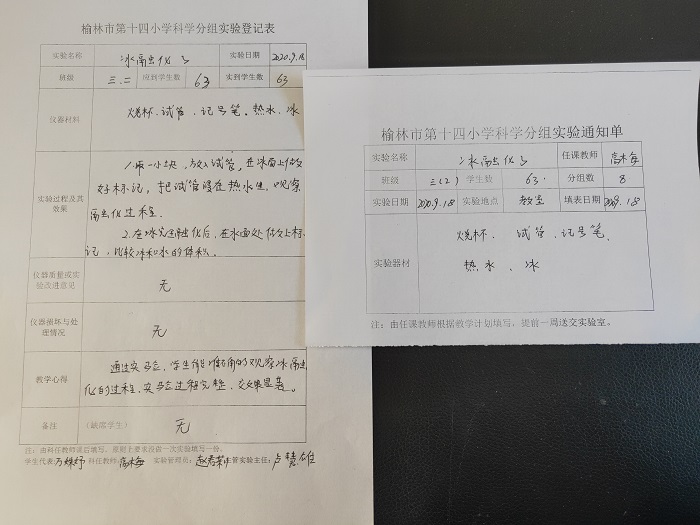 榆林市第十四小学科学分组实验登记表
实验名称 冰融化了 实验日期 2020.9.18
班级 三.二 应到学生数 63 实到学生数 63
仪器材料 烧杯、试管、记号笔、热水、冰
实验过程及其效果
1.取一小块,放入试管,在冰面上做
好标记,把试管浸在热水里,观察
融化过程.
2.在冰完全融化后,在水面处做上标
记,比较冰和水的体积.
仪器质量或实验改进意见 无
仪器损坏与处理情况 无
教学心得
通过实验,学生能准确的观察冰融
化的过程.实验过程完整、效果显著。
备注 (缺席学生) 无
注:由科任教师课后填写,原则上要求没做一次实验填写一份。
学生代表: 科任教师: 实验管理员: 主管实验主任:
榆林市第十四小学科学分组实验通知单
实验名称 冰融化了 任课教师
班级 三(2) 学生数 63. 分组数 8
实验日期 2020.9.18 实验地点 教室 填表日期
实验器材 烧杯、试管、记号笔、
热水、冰
注:由任课教师根据教学计划填写,提前一周送交实验室。